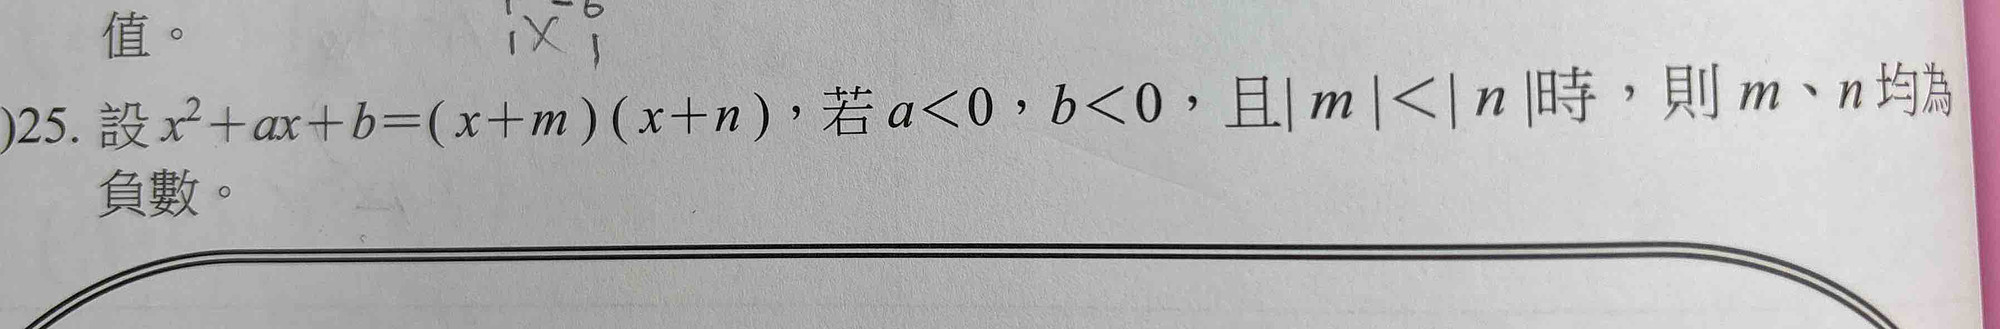 值。
1 -6
1 X 1
)25. 設 x²+ax+b=(x+m)(x+n)，若 a<0，b<0，且|m|<|n|時，則 m、n 均為
負數。